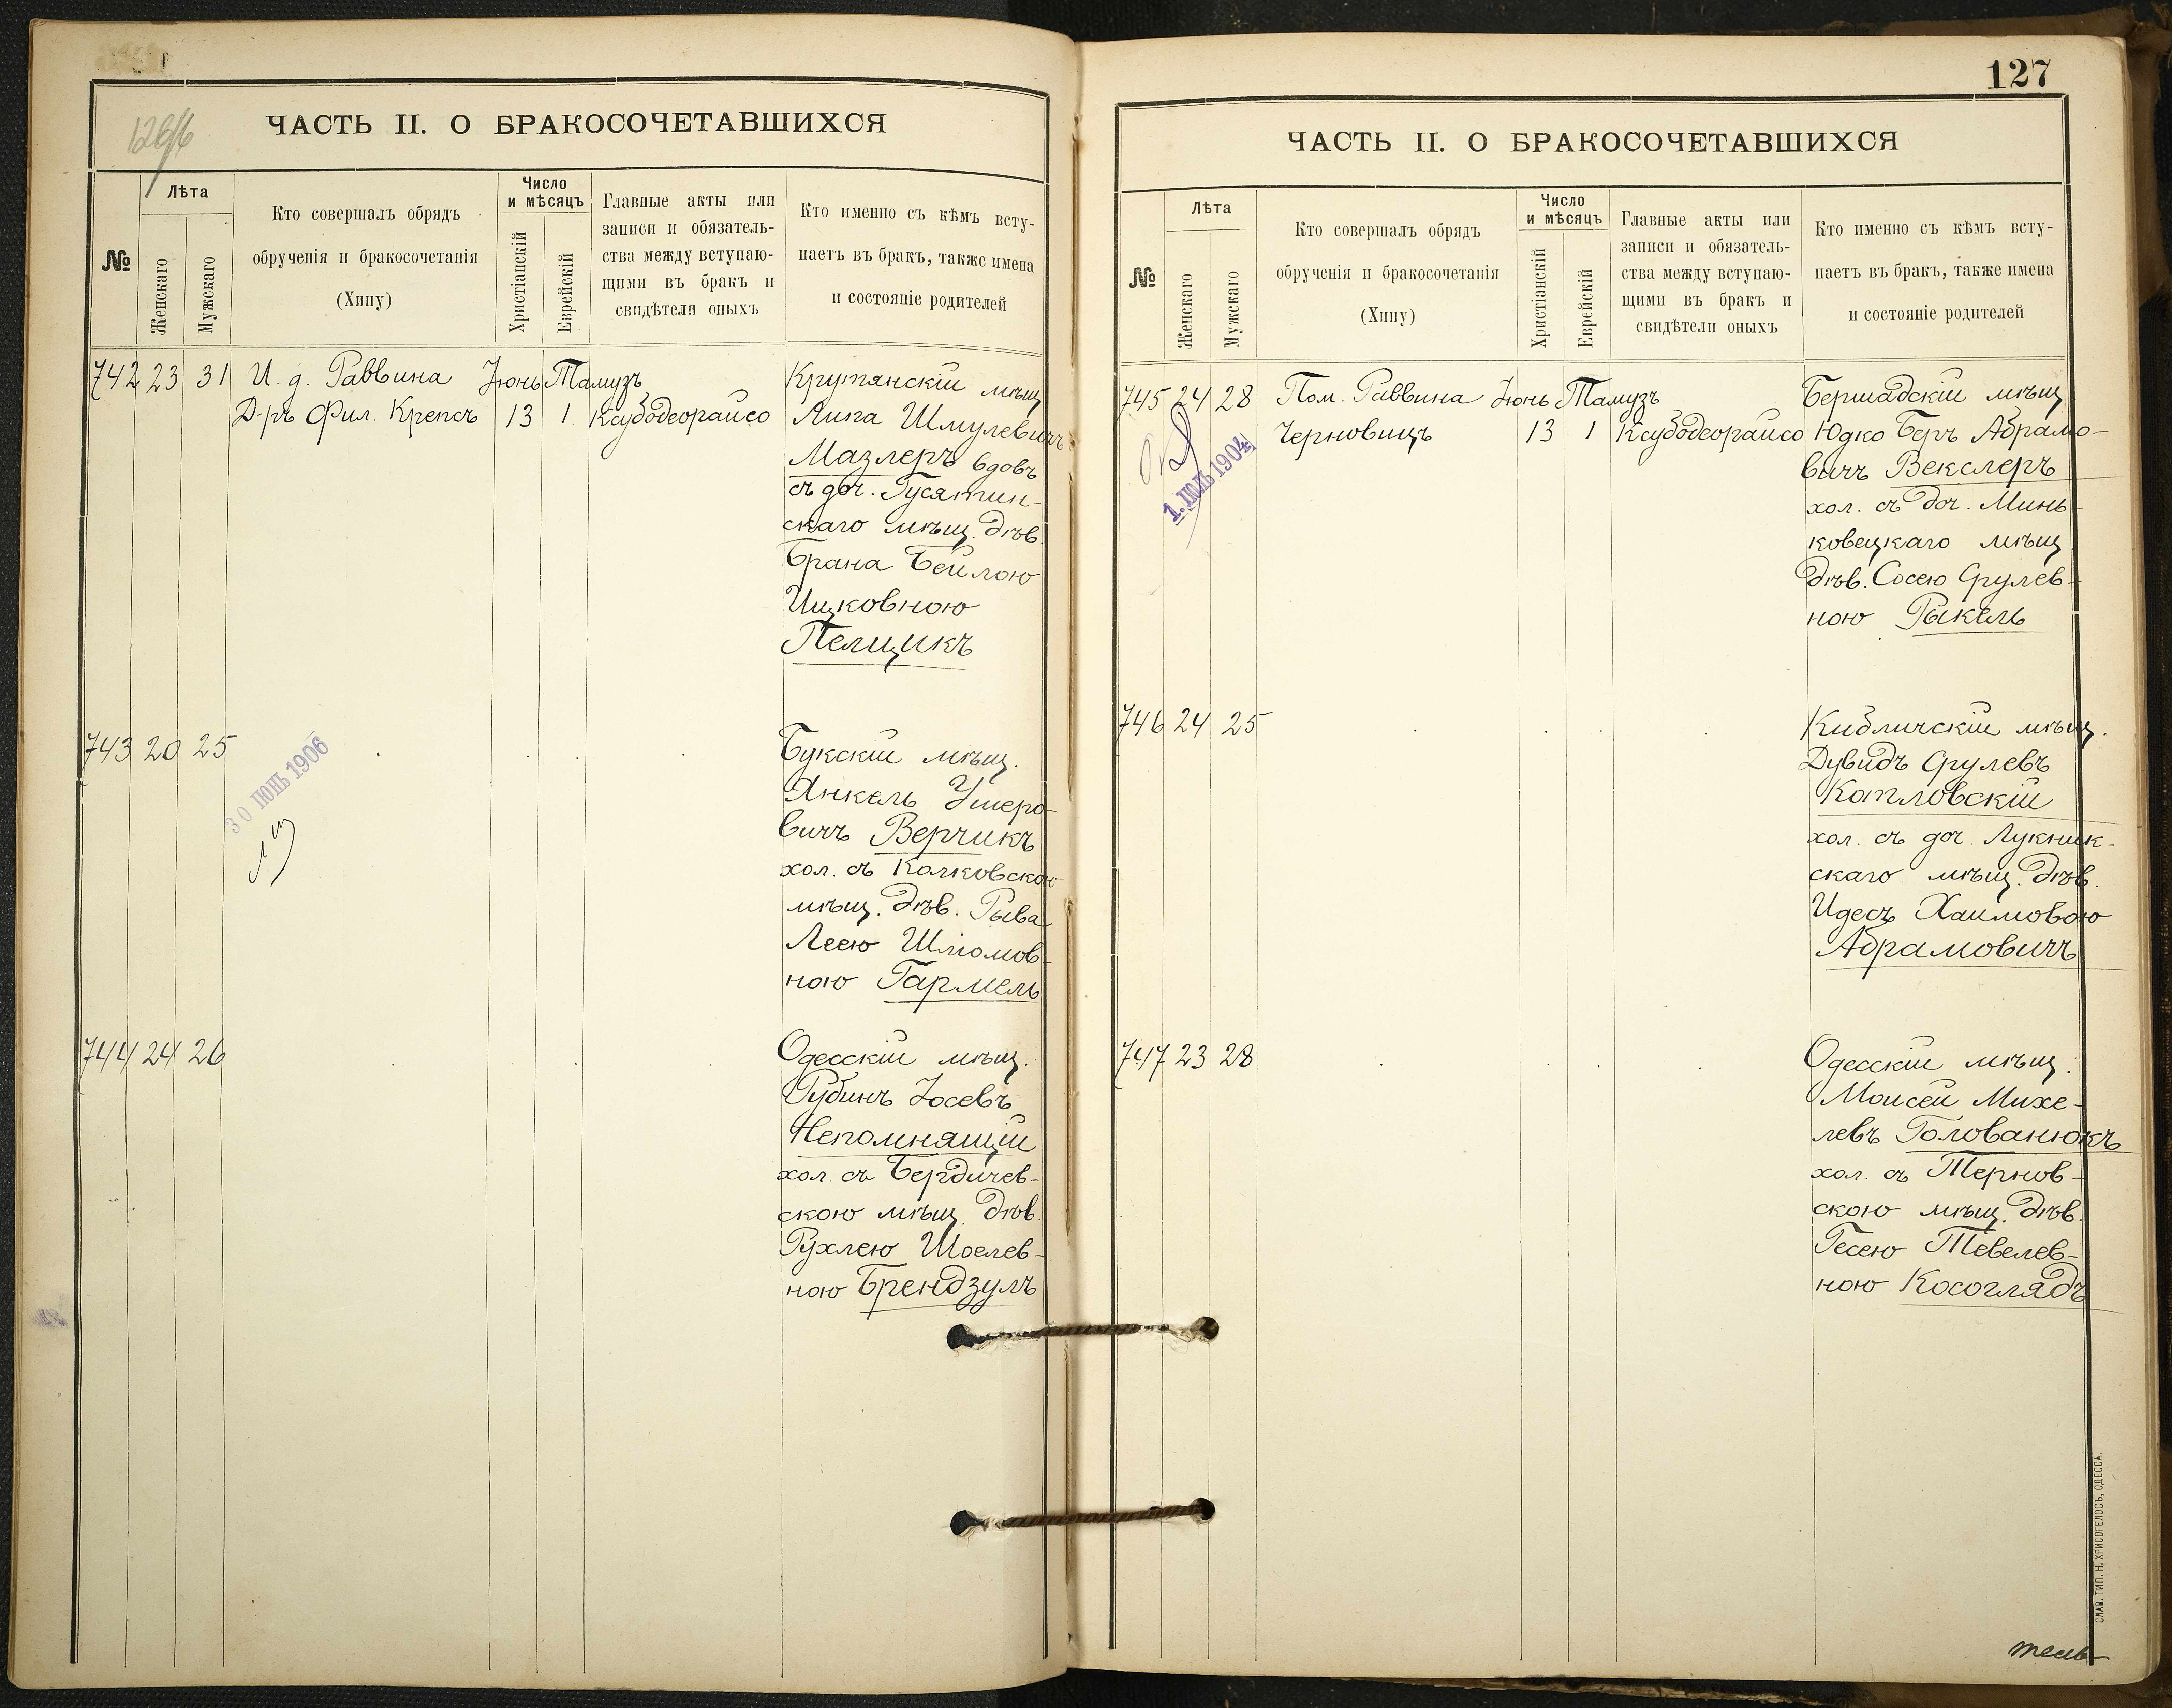 126/6
ЧАСТЬ II. О БРАКОСОЧЕТАВШИХСЯ
№
Лѣта
Женскаго
Мужскаго
Кто совершалъ обрядъ
обрученія и бракосочетанія
(Хипу)
Число
и мѣсяцъ
Христіанскій
Еврейскій
Главные акты или
записи и обязатель-
ства между вступаю-
щими въ бракъ и
свидѣтели оныхъ
Кто именно съ кѣмъ всту-
паетъ въ бракъ, также имена
и состояніе родителей
742 23 31 И. д. Раввина Іюнь Тамузъ
Д-ръ Фил. Крепсъ 13 1 Ксубодеорайсо
Крутянскій мѣщ.
Анка Шмулевичъ
Мазлеръ вдовъ
съ доч. Гусятин-
скаго мѣщ. дѣв.
Брана Бейлою
Ицковною
Пелщикъ
743 20 25
30 ІЮНЬ 1906
Букскій мѣщ.
Янкель Ушеро-
вичъ Верчикъ
хол. съ Колковскою
мѣщ. дѣв. Рыва
Леею Шлюмов-
ною Гармель
744 24 26
Одесскій мѣщ.
Рубинъ Іосевъ
Непомнящій
хол. съ Бердичев-
скою мѣщ. дѣв.
Рухлею Шоелев-
ною Брендзулъ
127
ЧАСТЬ II. О БРАКОСОЧЕТАВШИХСЯ
№
Лѣта
Женскаго
Мужскаго
Кто совершалъ обрядъ
обрученія и бракосочетанія
(Хипу)
Число
и мѣсяцъ
Христіанскій
Еврейскій
Главные акты или
записи и обязатель-
ства между вступаю-
щими въ бракъ и
свидѣтели оныхъ
Кто именно съ кѣмъ всту-
паетъ въ бракъ, также имена
и состояніе родителей
745 24 28 Пом. Раввина Іюнь Тамузъ
Черновицъ 13 1 Ксубодеорайсо
1. ІЮЛЬ 1904
Бершадскій мѣщ.
Юдко Беръ Абрамо-
вичъ Векслеръ
хол. съ доч. Минь-
ковецкаго мѣщ.
дѣв. Сосею Срулев-
ною Рыкель
746 24 25
Кибличскій мѣщ.
Дувидъ Срулевъ
Котловскій
хол. съ доч. Лукник-
скаго мѣщ. дѣв.
Идесъ Хаимовою
Абрамовичъ
747 23 28
Одесскій мѣщ.
Моисей Михе-
левъ Голованюкъ
хол. съ Тернов-
скою мѣщ. дѣв.
Гесею Тевелев-
ною Косоглядъ
СЛАВ. ТИП. Н. ХРИСОГЕЛОСЪ, ОДЕССА.